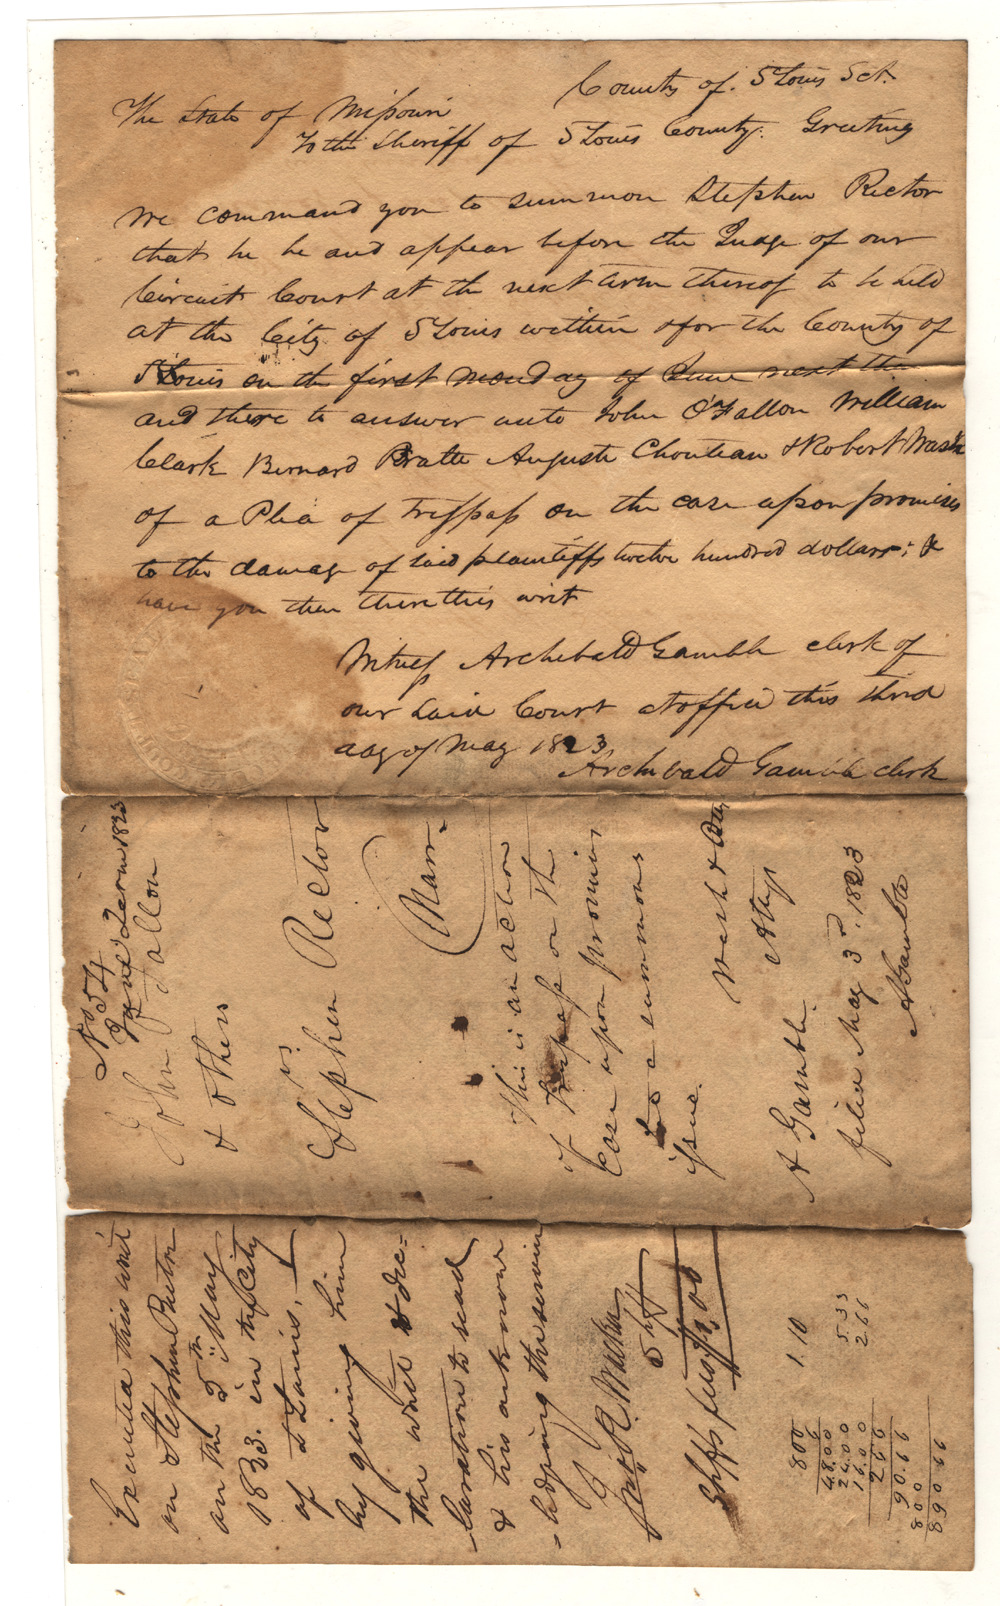 County of St Louis Sct.
The State of Missouri
To the Sheriff of St Louis County. Greeting
We command you to summon Stephen Rector
that he be and appear before the Judge of our
Circuit Court at the next term thereof to be held
at the City of St Louis within & for the County of
St Louis on the first monday of June next then
and there to answer unto John O'Fallon William
Clark Bernard Pratte Auguste Chouteau & Robert Wash
of a Plea of Trespass on the case upon promises
to the damage of said plaintiffs twelve hundred dollars; &
have you then there this writ
Witness Archibald Gamble clerk of
our said Court at office this third
day of May 1823
Archibald Gamble clerk
No 54
June Term 1823
John O Fallon
& others
vs
Stephen Rector
This is an action
of Trespass on the
Case upon promises
a summons
issue.
Wash &
Attys
A Gamble.
filed May 3d. 1823
A Gamble
Executed this writ
on Stephen Rector
on the 5th May
1823. in the City
of St Louis,
by giving him
the writ & dec=
laration to read
& his acknow
ledging the service
Jno. K. Walker
Shff
Shffs fees $1,00
1.10
533
266
800
6
4800
2400
1600
266
90.66
800
890 66